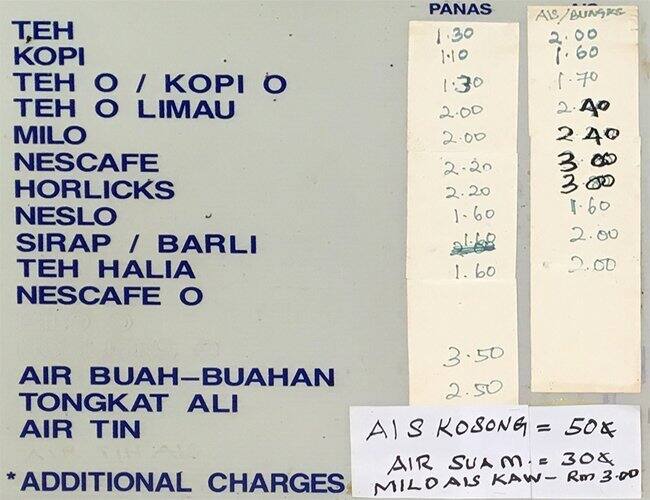 PANAS AIS/BUNGKS
TEH 1.30 2.00
KOPI 1.10 1.60
TEH O / KOPI O 1.30 1.70
TEH O LIMAU 2.00 2.40
MILO 2.00 2.40
NESCAFE 2.20 3.00
HORLICKS 2.20 3.00
NESLO 1.60 1.60
SIRAP / BARLI 1.60 2.00
TEH HALIA 1.60 2.00
NESCAFE O
AIR BUAH-BUAHAN 3.50
TONGKAT ALI 2.50
AIR TIN
AIS KOSONG = 50¢
AIR SUAM = 30¢
MILO AIS KAW - RM 3.00
*ADDITIONAL CHARGES